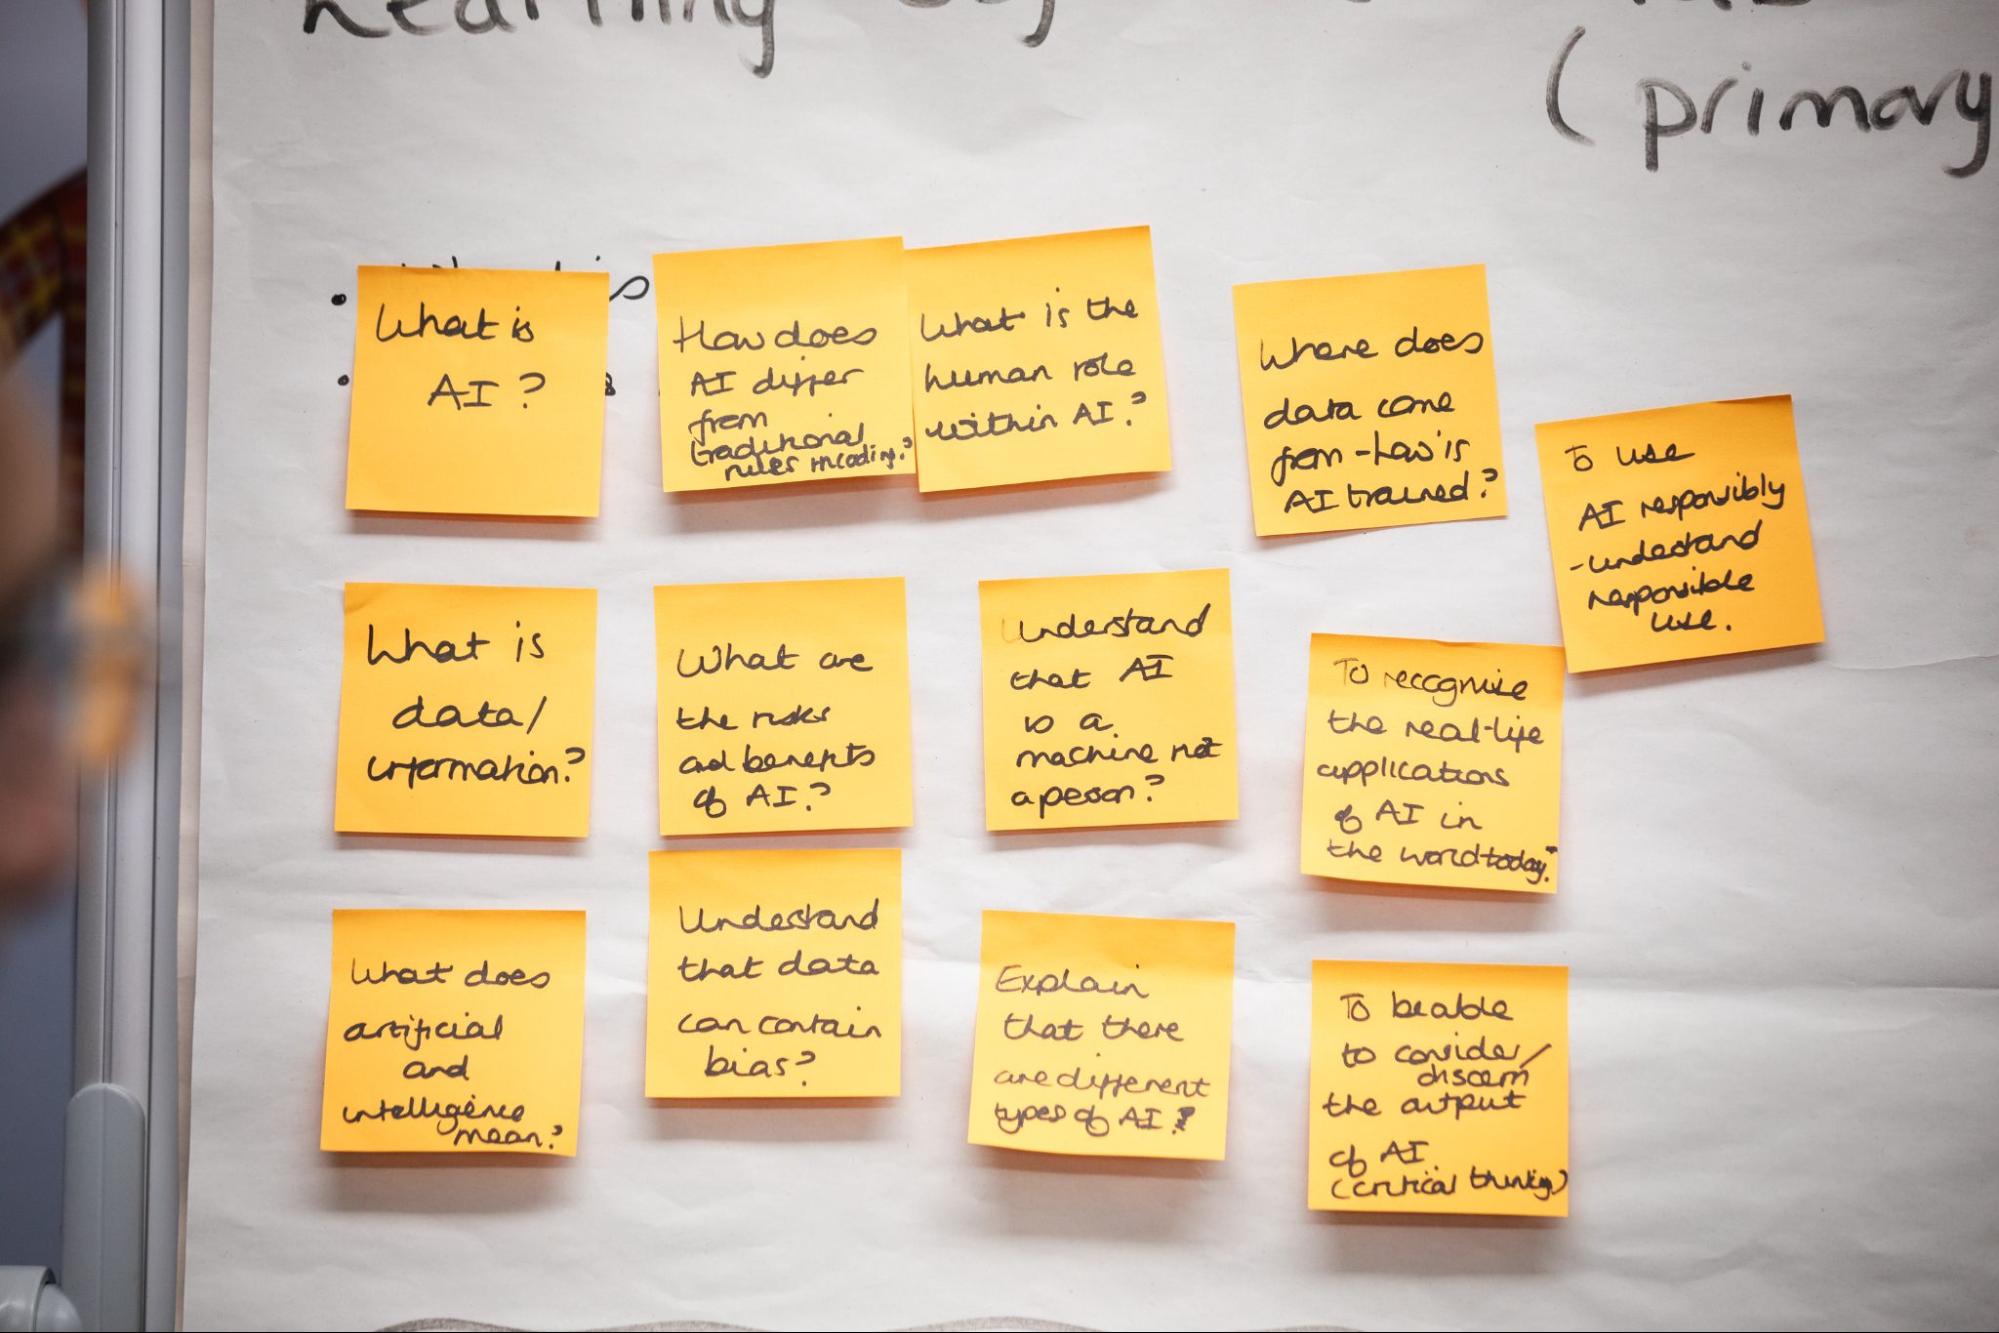 Learning
(primary
What is
AI?
How does
AI differ
from
traditional
rules in coding?
What is the
human role
within AI?
Where does
data come
from - how is
AI trained?
To use
AI responsibly
- understand
responsible
use.
What is
data/
information?
What are
the risks
and benefits
of AI?
Understand
that AI
is a
machine not
a person?
To recognise
the real-life
applications
of AI in
the world today?
What does
artificial
and
intelligence
mean?
Understand
that data
can contain
bias?
Explain
that there
are different
types of AI?
To be able
to consider/
discern
the output
of AI
(critical thinking)